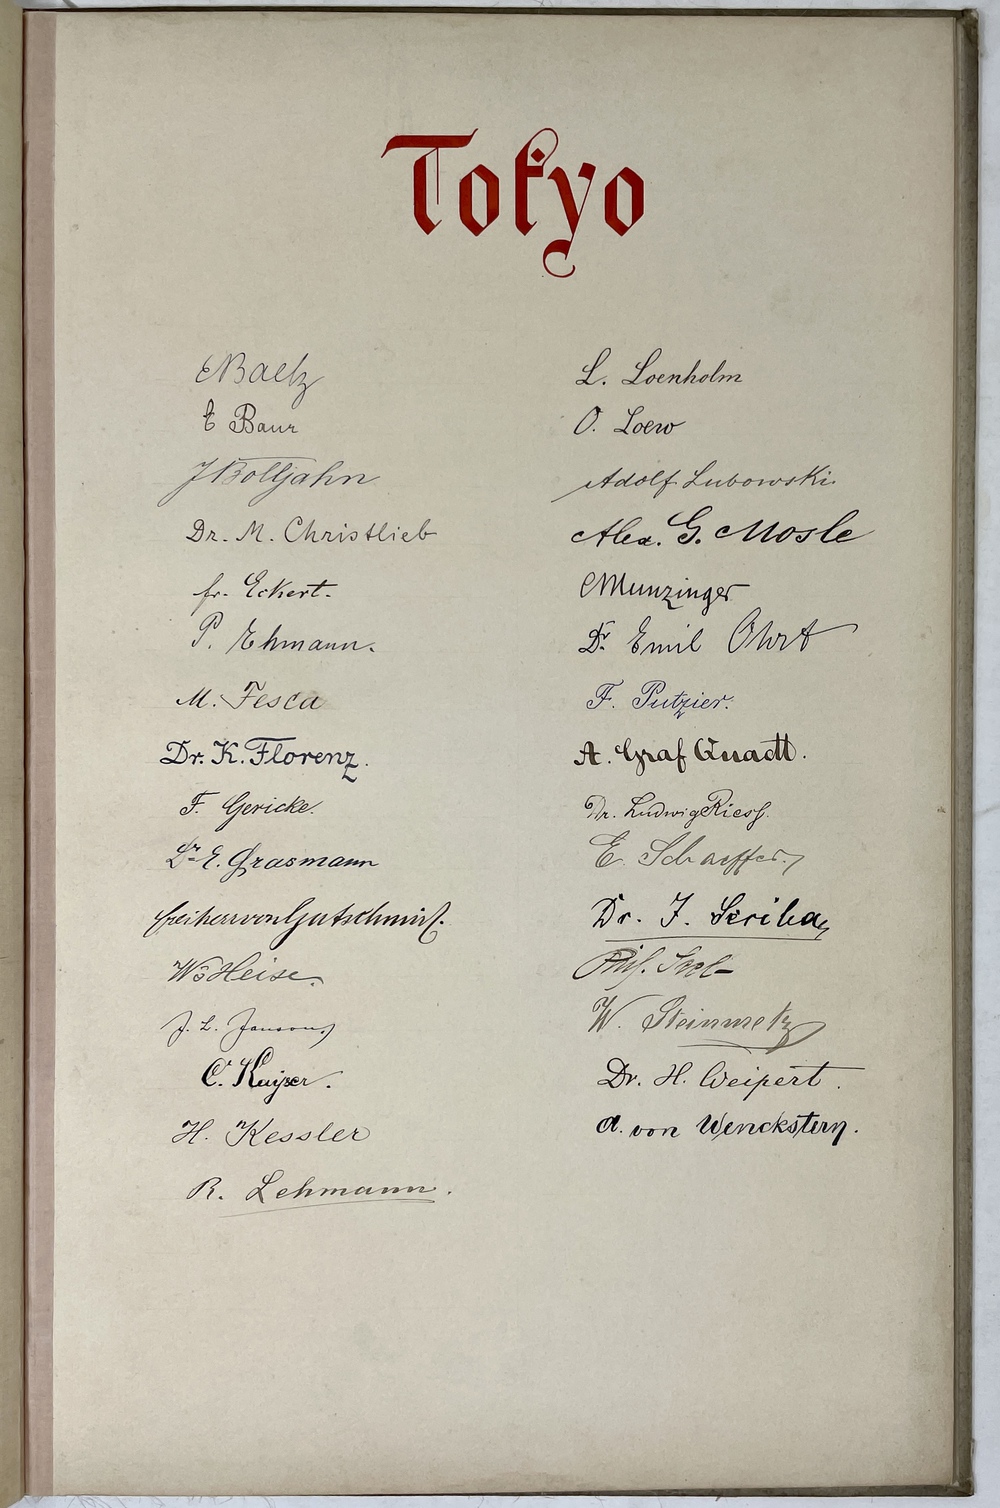 Tokyo
EBaelz
E Baur
J Bolljahn
Dr. M. Christlieb
fr. Eckert.
P. Ehmann.
M. Fesca
Dr. K. Florenz.
F. Gericke.
Dr. E. Grasmann
freiherr von Gutschmid.
Heise.
J. L. Janson
C. Kayser.
H. Kessler
R. Lehmann.
L. Loenholm
O. Loew
Adolf Lubowski.
Alex. G. Mosle
Munzinger
Dr. Emil Ohrt
F. Putzier.
A. Graf Quadt.
Dr. Ludwig Riess.
E. Schaeffer.
Dr. J. Scriba
W. Steinmetz
Dr. H. Weipert.
A. von Wenckstern.